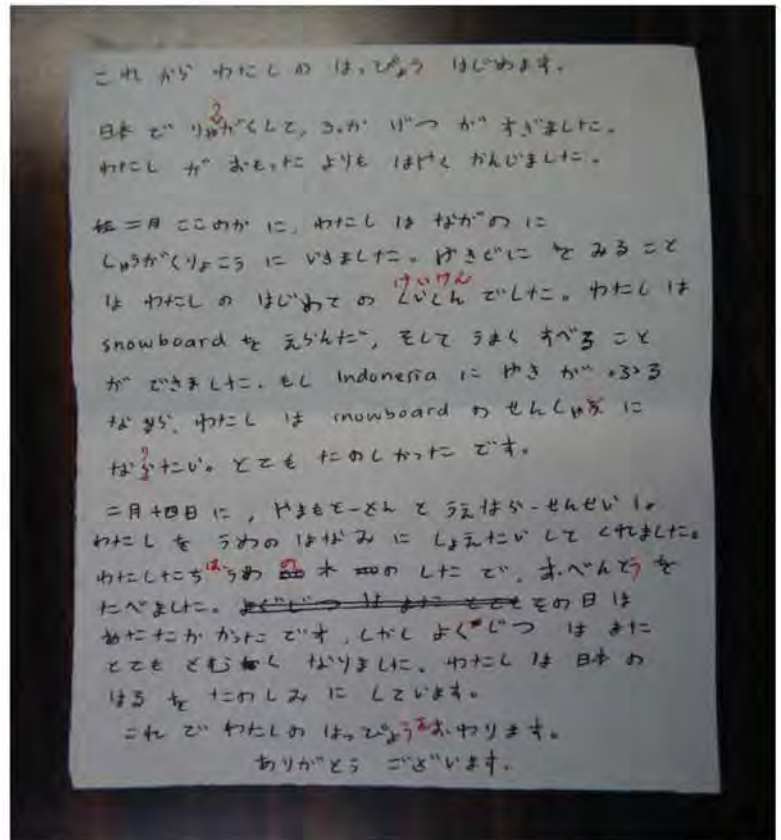 これ から わたしの はっぴょう はじめます。
日本 で りゅうがくして, ろっか げつ が すぎました。
わたし が おもった よりも はやく かんじました。
二月 ここのか に, わたし は ながの に
しゅうがくりょこう に いきました。 ゆきぐに を みること
は わたし の はじめて の けいけん でした。 わたし は
snowboard を えらんだ, そして うまく すべる こと
が できました. もし Indonesia に ゆき が ふる
なら, わたし は snowboard の せんしゅ に
なりたい。 とても たのしかった です。
二月 十四日 に, やまもとーさん と うえはらーせんせい は
わたし を うめの はなみ に しょえたい して くれました。
わたしたち は うめ の 木 の した で, おべんとう を
たべました。 よくじつ は また とても その日 は
あたたか かった です, しかし よくじつ は また
とても さむく なりました. わたし は 日本 の
はる を たのしみ に しています。
これ で わたしの はっぴょうをおわります。
ありがとう ございます.